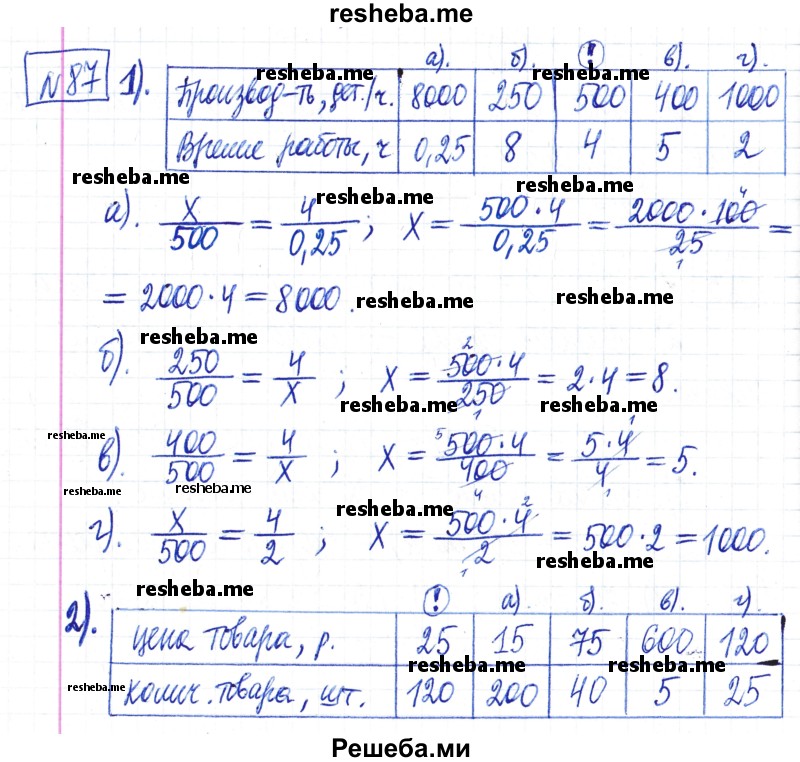 resheba.me
№87 1). а). б). ! в). г).
Производ-ть, дет./ч. 8000 250 500 400 1000
resheba.me resheba.me resheba.me
Время работы, ч 0,25 8 4 5 2
resheba.me resheba.me resheba.me
а). x/500 = 4/0,25 ; x = 500·4/0,25 = 2000·100/25 =
= 2000·4 = 8000. resheba.me resheba.me
resheba.me
б). 250/500 = 4/x ; x = 500·4/250 = 2·4 = 8.
resheba.me resheba.me
resheba.me
в). 400/500 = 4/x ; x = 500·4/400 = 5·4/4 = 5.
resheba.me resheba.me
resheba.me
г). x/500 = 4/2 ; x = 500·4/2 = 500·2 = 1000.
resheba.me
resheba.me
2). ! а). б). в). г).
цена товара, р. 25 15 75 600 120
resheba.me resheba.me
resheba.me колич. товара, шт. 120 200 40 5 25
Решеба.ми